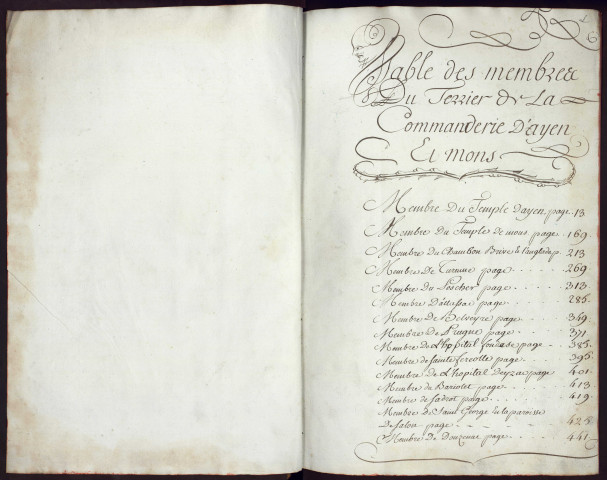 Table des membres
Du Terrier de La
Commanderie D'ayen
Et mons
Membre Du Temple Dayen, page. 13
Membre Du Temple de mons page. 169
Membre Du Chambon Brive & page. 213
Membre De Turenne page. 269
Membre Du Poscher page. 313
Membre page. 285
Membre de Belveyre page. 349
Membre de page. 371
Membre de L'hopital page. 385
Membre de Sainte page. 395
Membre de L'hopital Deyzac page 401
Membre de Bariolet page. 413
Membre de Ladrot page. 419
Membre de Saint George la paroisse
de Salon page. 425
Membre De Douzenac page. 441